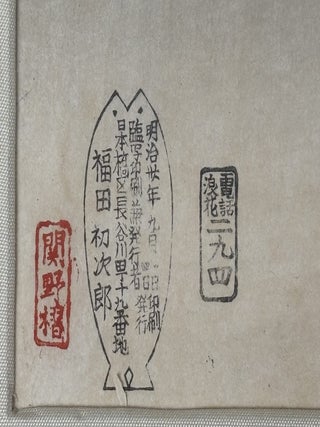 電話
浪花
二九四
明治廿年 九月 日印刷
日発行
臨写印刷兼発行者
日本橋区長谷川町十九番地
福田初次郎
関野摺